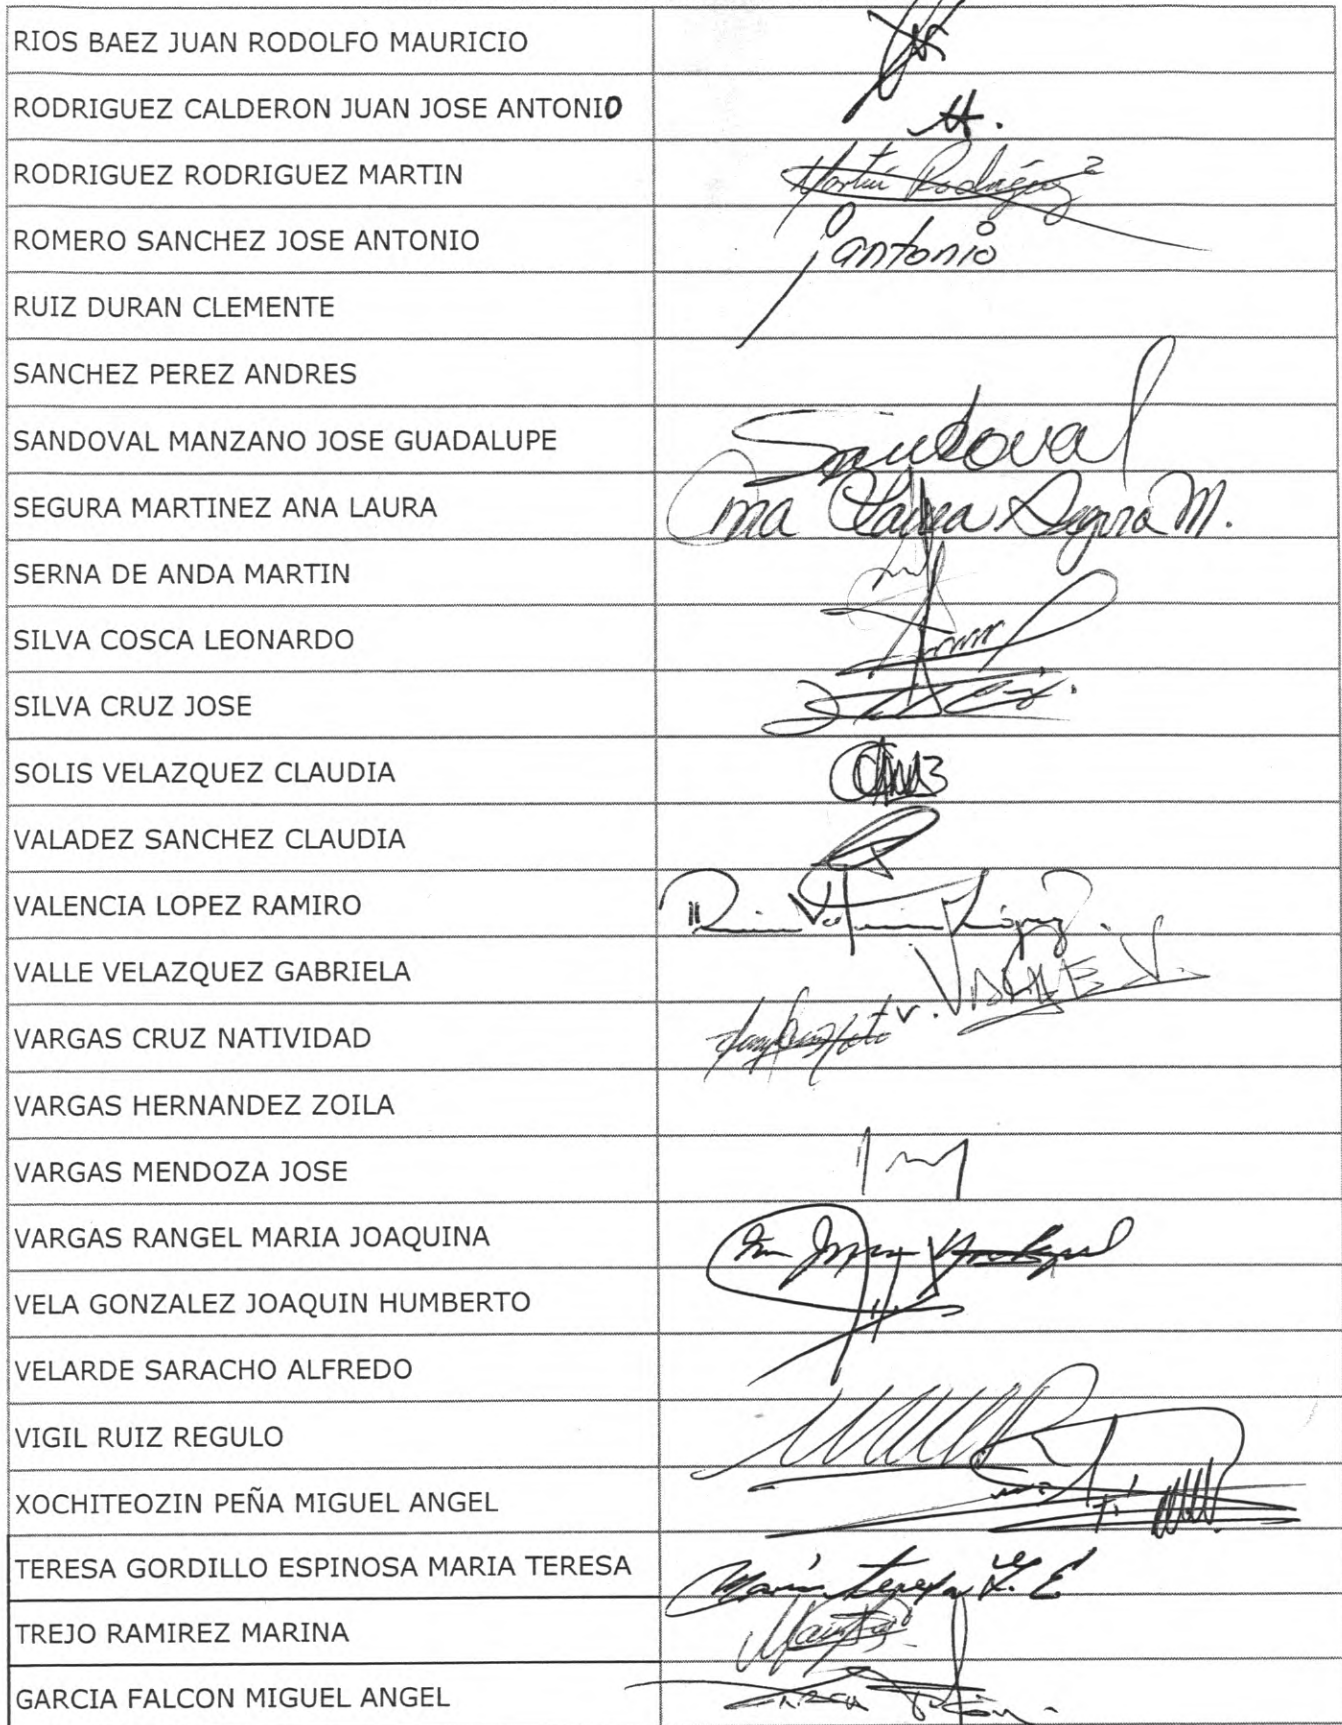 RIOS BAEZ JUAN RODOLFO MAURICIO
RODRIGUEZ CALDERON JUAN JOSE ANTONIO
RODRIGUEZ RODRIGUEZ MARTIN
Martín Rodríguez
ROMERO SANCHEZ JOSE ANTONIO
j antonio
RUIZ DURAN CLEMENTE
SANCHEZ PEREZ ANDRES
SANDOVAL MANZANO JOSE GUADALUPE
Sandoval
SEGURA MARTINEZ ANA LAURA
Ana Laura Segura M.
SERNA DE ANDA MARTIN
SILVA COSCA LEONARDO
SILVA CRUZ JOSE
SOLIS VELAZQUEZ CLAUDIA
VALADEZ SANCHEZ CLAUDIA
VALENCIA LOPEZ RAMIRO
López
VALLE VELAZQUEZ GABRIELA
VARGAS CRUZ NATIVIDAD
VARGAS HERNANDEZ ZOILA
VARGAS MENDOZA JOSE
VARGAS RANGEL MARIA JOAQUINA
VELA GONZALEZ JOAQUIN HUMBERTO
VELARDE SARACHO ALFREDO
VIGIL RUIZ REGULO
XOCHITEOZIN PEÑA MIGUEL ANGEL
TERESA GORDILLO ESPINOSA MARIA TERESA
María Teresa G. E.
TREJO RAMIREZ MARINA
GARCIA FALCON MIGUEL ANGEL